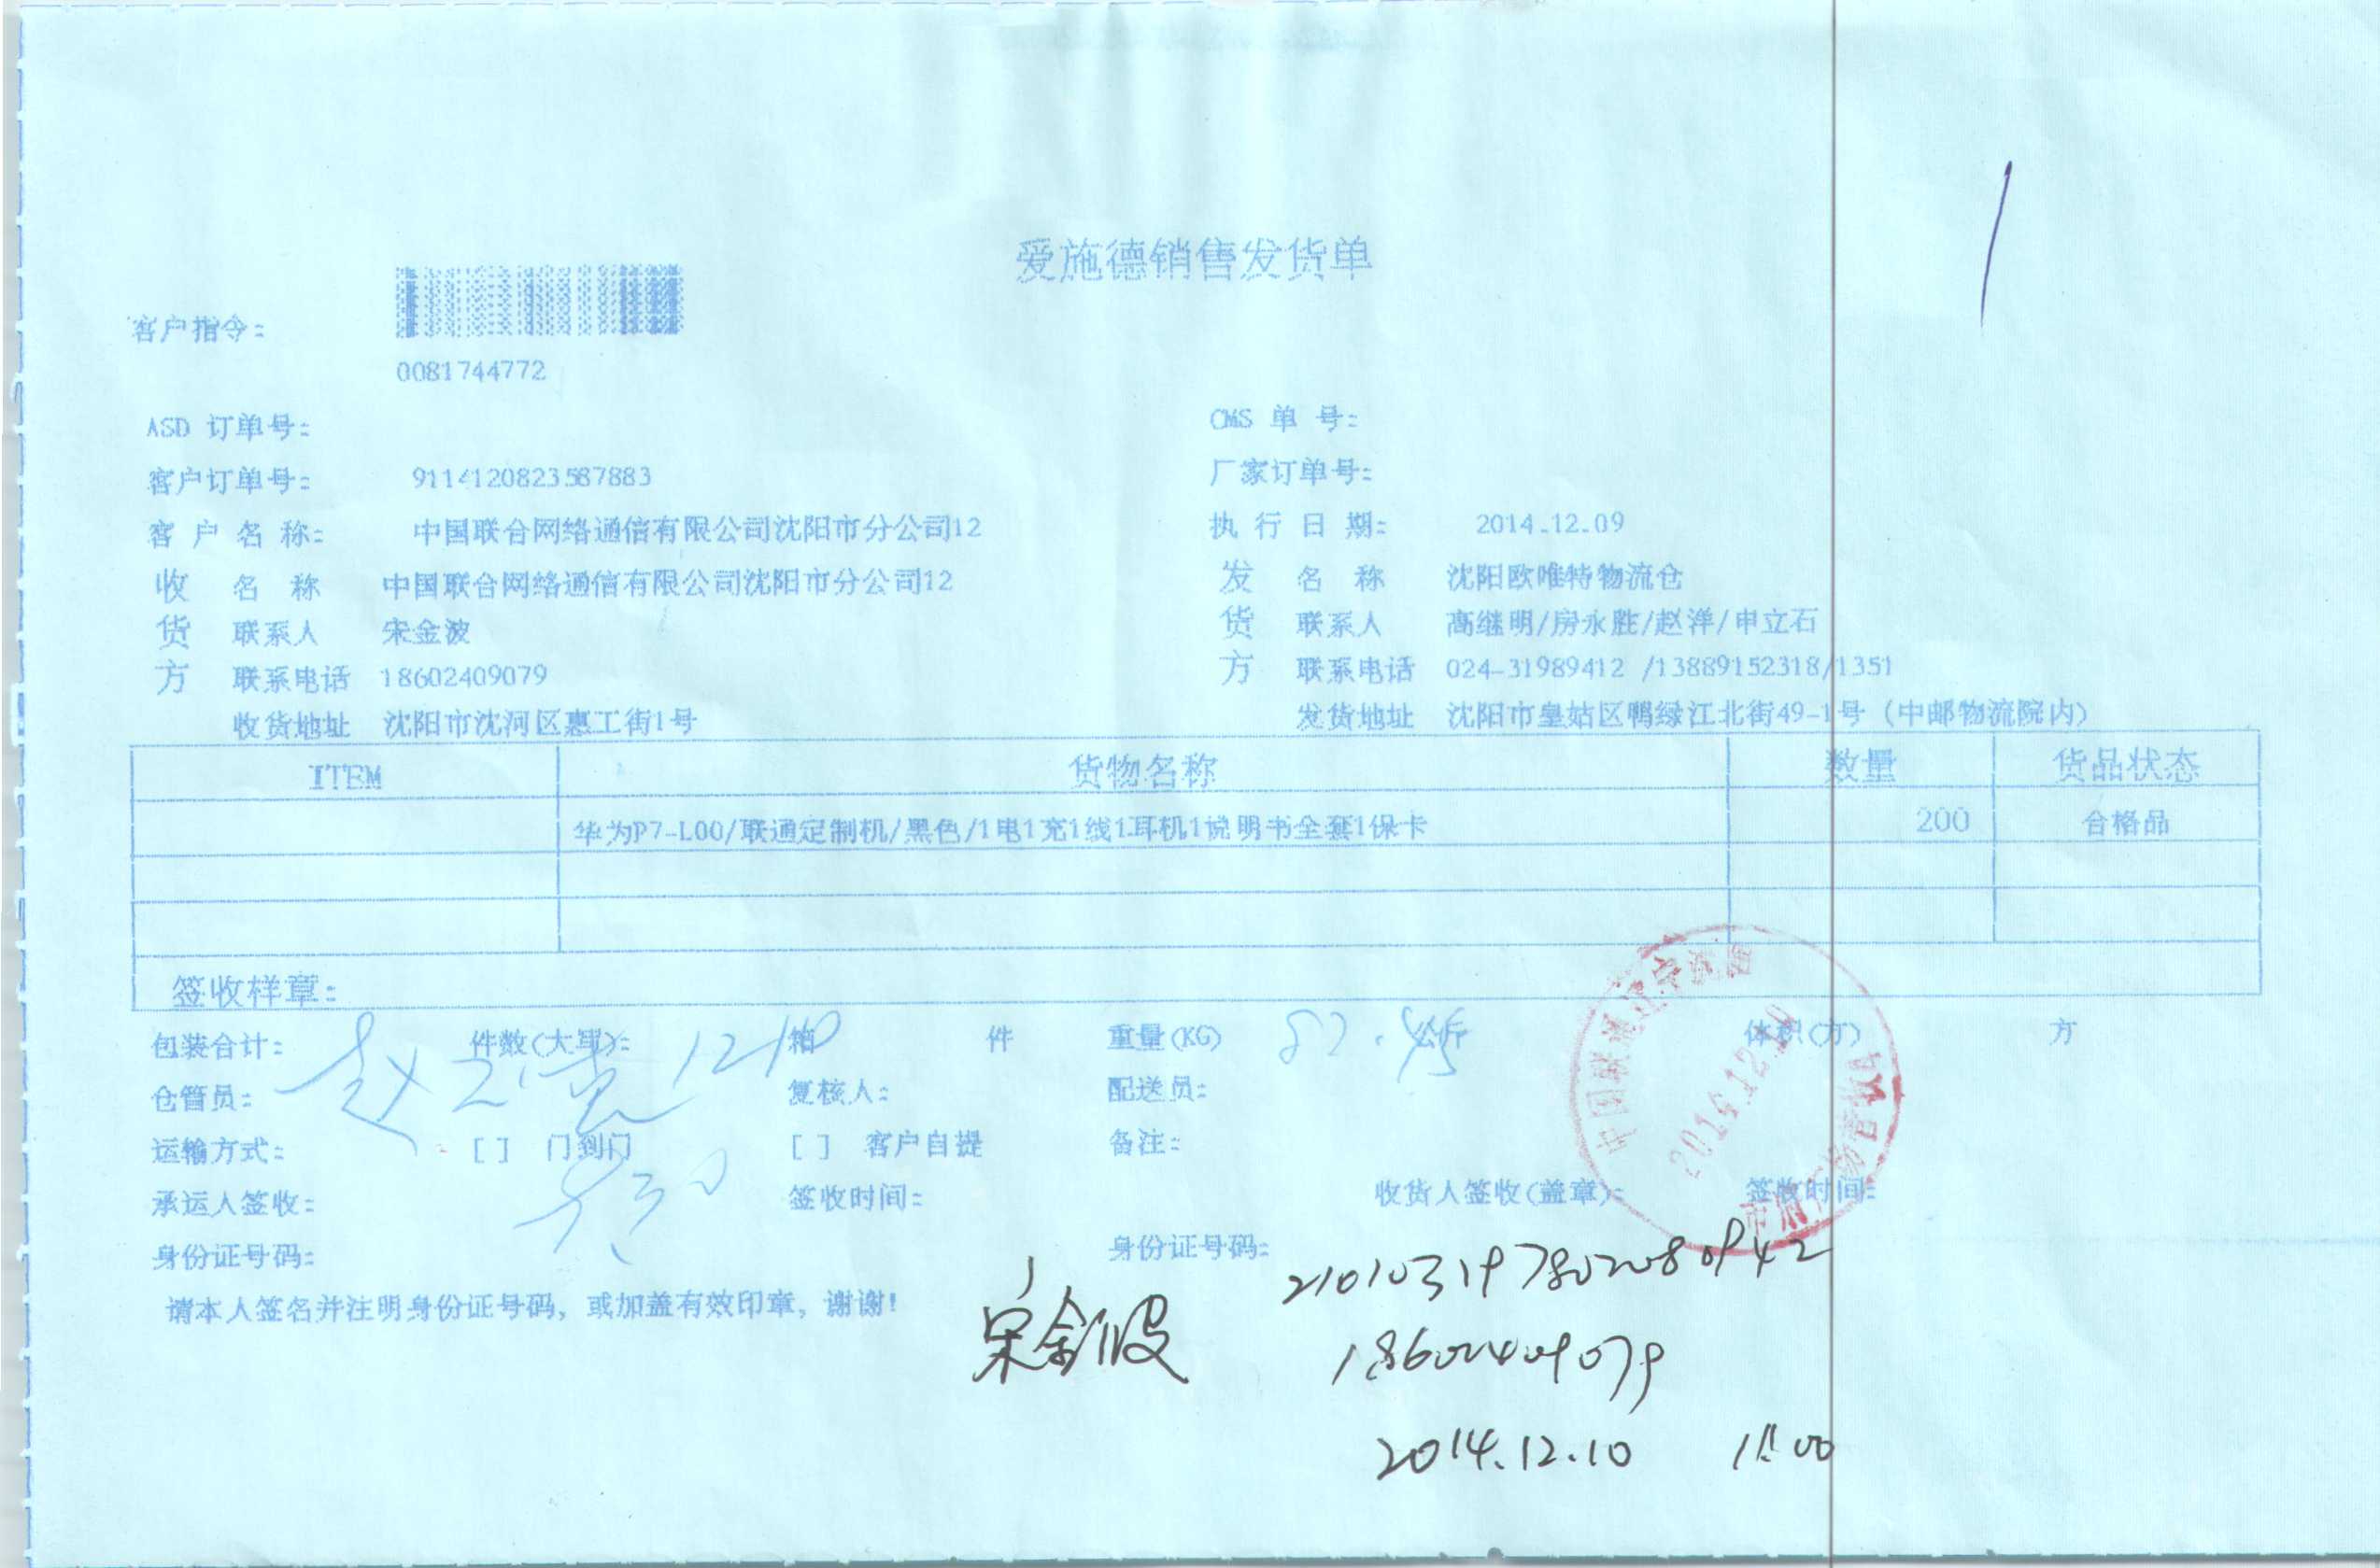 爱施德销售发货单
客户指令:
0081744772
ASD 订单号:
CMS 单 号:
客户订单号: 9114120823587883
厂家订单号:
客 户 名 称: 中国联合网络通信有限公司沈阳市分公司12
执 行 日 期: 2014.12.09
收 名 称 中国联合网络通信有限公司沈阳市分公司12
发 名 称 沈阳欧唯特物流仓
货 联系人 宋金波
货 联系人 高继明/房永胜/赵洋/申立石
方 联系电话 18602409079
方 联系电话 024-31989412 /13889152318/1351
收货地址 沈阳市沈河区惠工街1号
发货地址 沈阳市皇姑区鸭绿江北街49-1号 (中邮物流院内)
ITEM 货物名称 数量 货品状态
华为P7-L00/联通定制机/黑色/1电1充1线1耳机1说明书全套1保卡 200 合格品
签收样章:
包装合计: 件数(大写): 箱 件 重量(KG) 公斤 体积(方) 方
12/10
仓管员: 复核人: 配送员:
运输方式: [ ] 门到门 [ ] 客户自提 备注:
2014.12.10
承运人签收: 签收时间: 收货人签收(盖章): 签收时间:
身份证号码: 身份证号码:
请本人签名并注明身份证号码, 或加盖有效印章, 谢谢!
宋金波
18602409079
2014.12.10